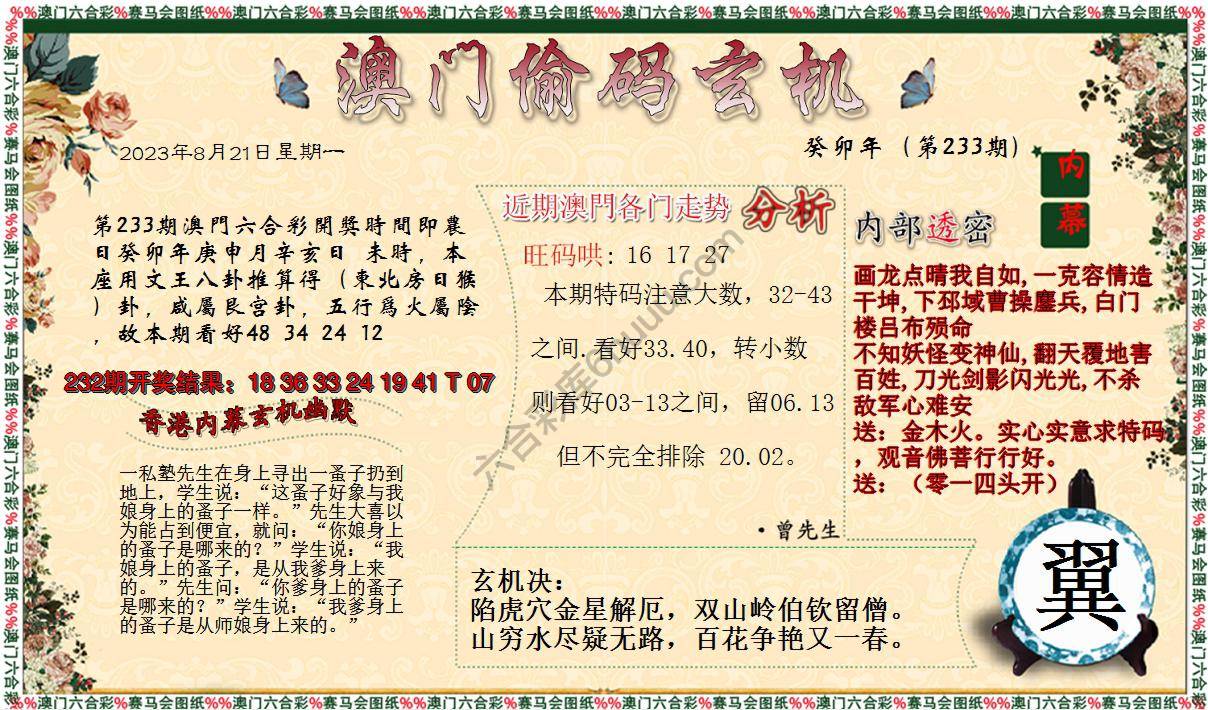 %%澳门六合彩%赛马会图纸%%澳门六合彩%赛马会图纸%%澳门六合彩%赛马会图纸%%澳门六合彩%赛马会图纸%%澳门六合彩%赛马会图纸%%澳门六合彩%赛马会图纸%%
澳门偷码玄机
2023年8月21日星期一
癸卯年（第233期）
内
幕
第233期澳門六合彩開獎時間即農
日癸卯年庚申月辛亥日 未時，本
座用文王八卦推算得（東北房日猴
）卦，咸屬艮宫卦，五行爲火屬陰
，故本期看好48 34 24 12
232期开奖结果：18 36 33 24 19 41 T 07
香港内幕玄机幽默
一私塾先生在身上寻出一蚤子扔到
地上，学生说：“这蚤子好象与我
娘身上的蚤子一样。”先生大喜以
为能占到便宜，就问：“你娘身上
的蚤子是哪来的？”学生说：“我
娘身上的蚤子，是从我爹身上来
的。”先生问：“你爹身上的蚤子
是哪来的？”学生说：“我爹身上
的蚤子是从师娘身上来的。”
近期澳門各门走势 分析
旺码哄: 16 17 27
本期特码注意大数，32-43
之间.看好33.40，转小数
则看好03-13之间，留06.13
但不完全排除 20.02。
·曾先生
内部透密
画龙点晴我自如,一克容情造
干坤,下邳域曹操鏖兵,白门
楼吕布殒命
不知妖怪变神仙,翻天覆地害
百姓,刀光剑影闪光光,不杀
敌军心难安
送：金木火。实心实意求特码
，观音佛菩行行好。
送：（零一四头开）
玄机决：
陷虎穴金星解厄，双山岭伯钦留僧。
山穷水尽疑无路，百花争艳又一春。
翼
%%澳门六合彩%赛马会图纸%%澳门六合彩%赛马会图纸%%澳门六合彩%赛马会图纸%%澳门六合彩%赛马会图纸%%澳门六合彩%赛马会图纸%%澳门六合彩%赛马会图纸%%